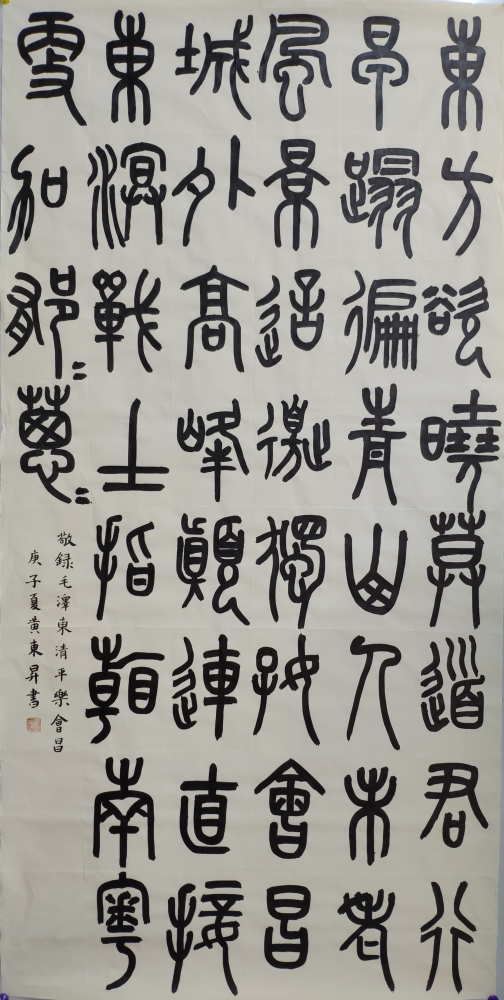 東方欲曉莫道君行
早蹋徧青山人未老
風景這邊獨好會昌
城外高峰顛連直接
東溟戰士指看南粵
更加郁〻蔥〻
敬録毛澤東清平樂會昌
庚子夏黃東昇書